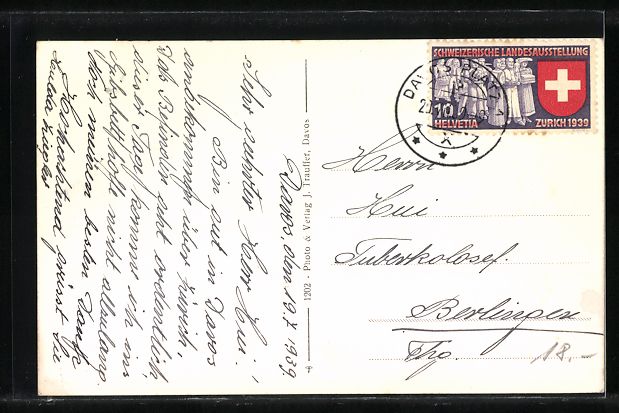 SCHWEIZERISCHE LANDESAUSSTELLUNG
10
HELVETIA ZÜRICH 1939
DAVOS PLATZ
Herrn
Hui
Tuberkolosef.
Berlingen
Thg.
18.-
1202 · Photo & Verlag J. Trauffer, Davos
Davos, den 19.7.1939
Sehr geehrter Herr Hui!
Bin gut in Davos
angekommen über Zürich,
Hab Behrmann
einer Tag kommt ich ans
hoffe nicht allzulang.
Noch meinen besten Dank
Hochachtend grüsst Sie